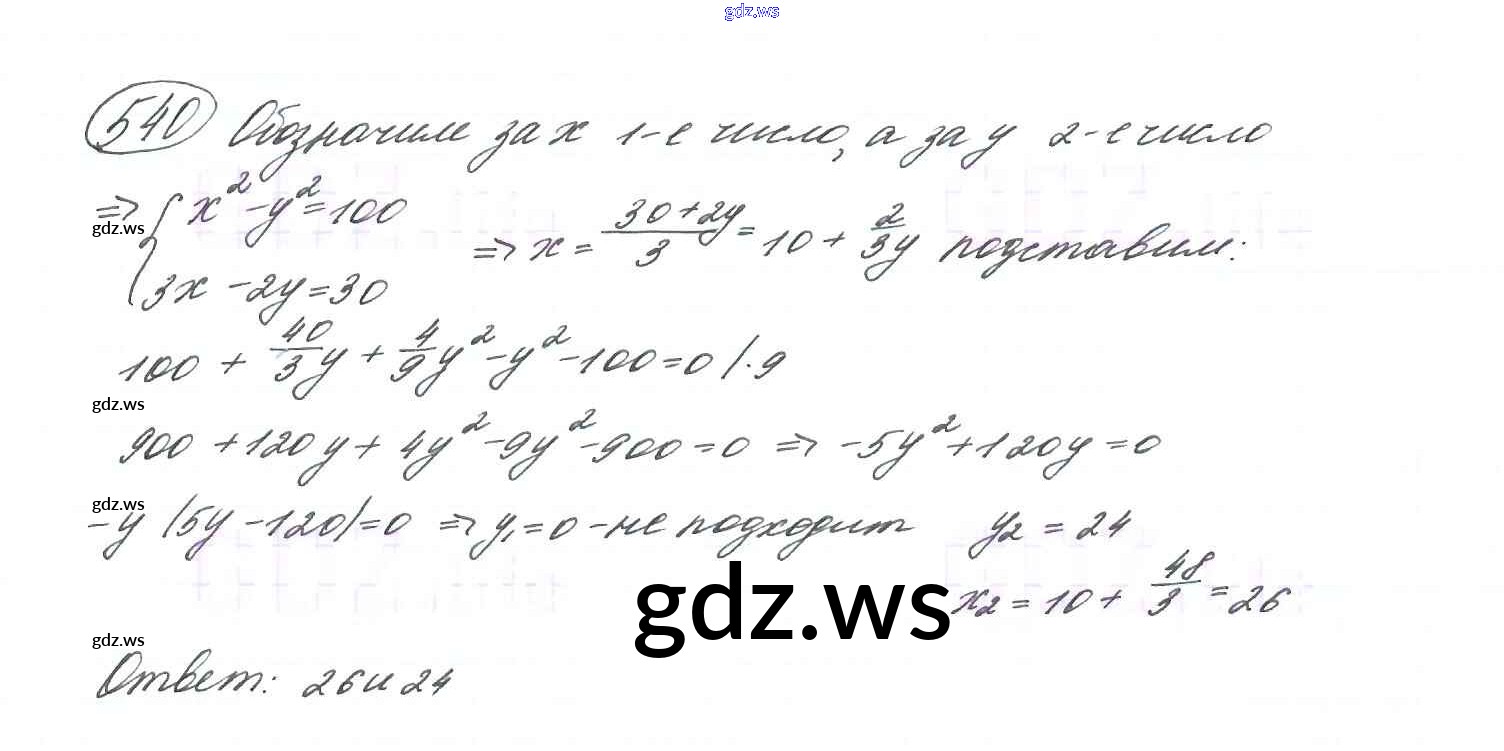 gdz.ws
540 Обозначим за x 1-е число, а за y 2-е число
⇒ { x² - y² = 100
3x - 2y = 30 ⇒ x = (30 + 2y)/3 = 10 + 2/3 y подставим:
gdz.ws
100 + 40/3 y + 4/9 y² - y² - 100 = 0 |·9
gdz.ws
900 + 120y + 4y² - 9y² - 900 = 0 ⇒ -5y² + 120y = 0
gdz.ws
-y (5y - 120) = 0 ⇒ y₁ = 0 - не подходит y₂ = 24
gdz.ws
x₂ = 10 + 48/3 = 26
gdz.ws
Ответ: 26 и 24